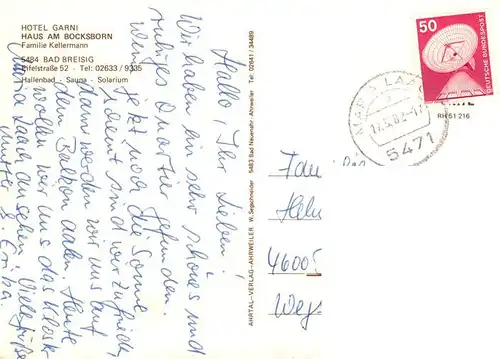 HOTEL GARNI
HAUS AM BOCKSBORN
Familie Kellermann
5484 BAD BREISIG
Eifelstraße 52 - Tel: 02633 / 9335
Hallenbad - Sauna - Solarium
Hallo, Ihr Lieben!
Wir haben ein sehr schönes und
ruhiges Quartier gefunden.
jetzt noch die Sonne
scheint sind wir zufrieden,
dann werden wir uns auf
dem Balkon aalen. Heute
wollen wir uns das Kloster
Maria Laach ansehen. Viele Grüße
Erika.
AHRTAL-VERLAG-AHRWEILER W. Segschneider 5483 Bad Neuenahr-Ahrweiler Tel: 02641 / 34489
50
DEUTSCHE BUNDESPOST
MARIA LAACH
5471
RH 51 216
Fam
46005